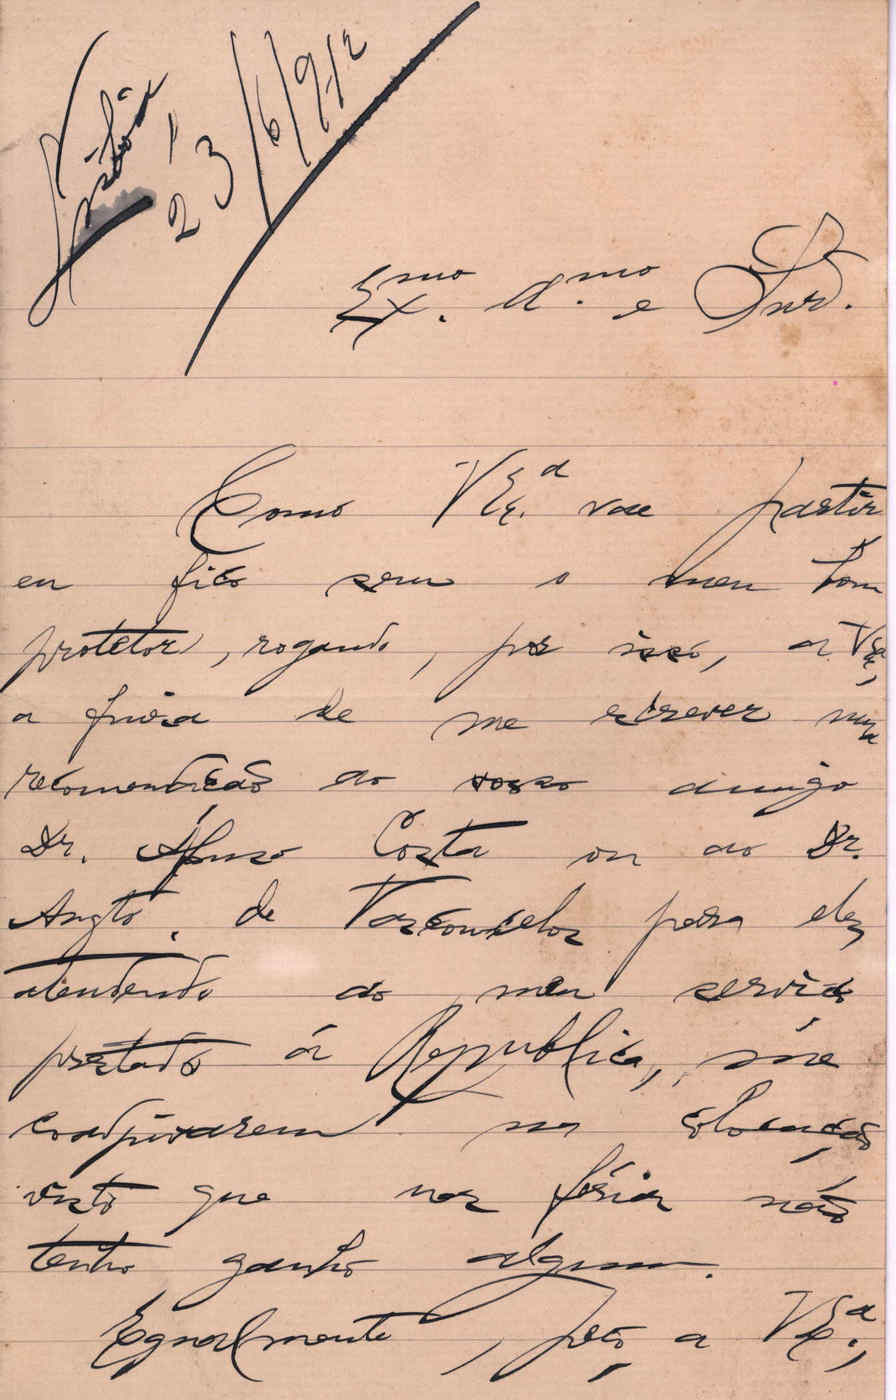 Lisboa
23/6/912
Ex.mo d.mo e Snr.
Como V Ex.a vae partir
eu fico sem o meu bom
protetor, rogando, por isso, a V Ex.a,
a fineza de me escrever uma
recomendação ao vosso amigo
Dr. Afonso Costa ou ao Dr.
Augto. de Vasconcelos para eles
atendendo ao meu serviço
prestado á Republica, me
coadjuvarem na colocação
visto que nas férias não
tenho ganho algum.
Egualmente, peço, a V Ex.a,